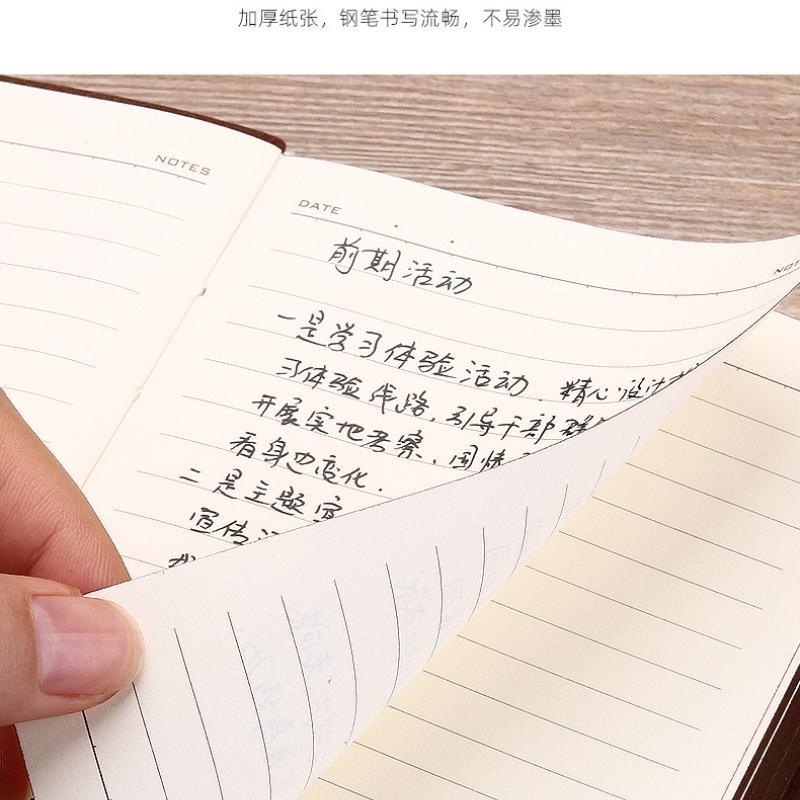 加厚纸张，钢笔书写流畅，不易渗墨
NOTES
DATE
NOT
前期活动
一是学习体验活动．精心设计
习体验线路，引导干部群
开展实地考察、国情
看身边变化．
二是主题宣
宣传